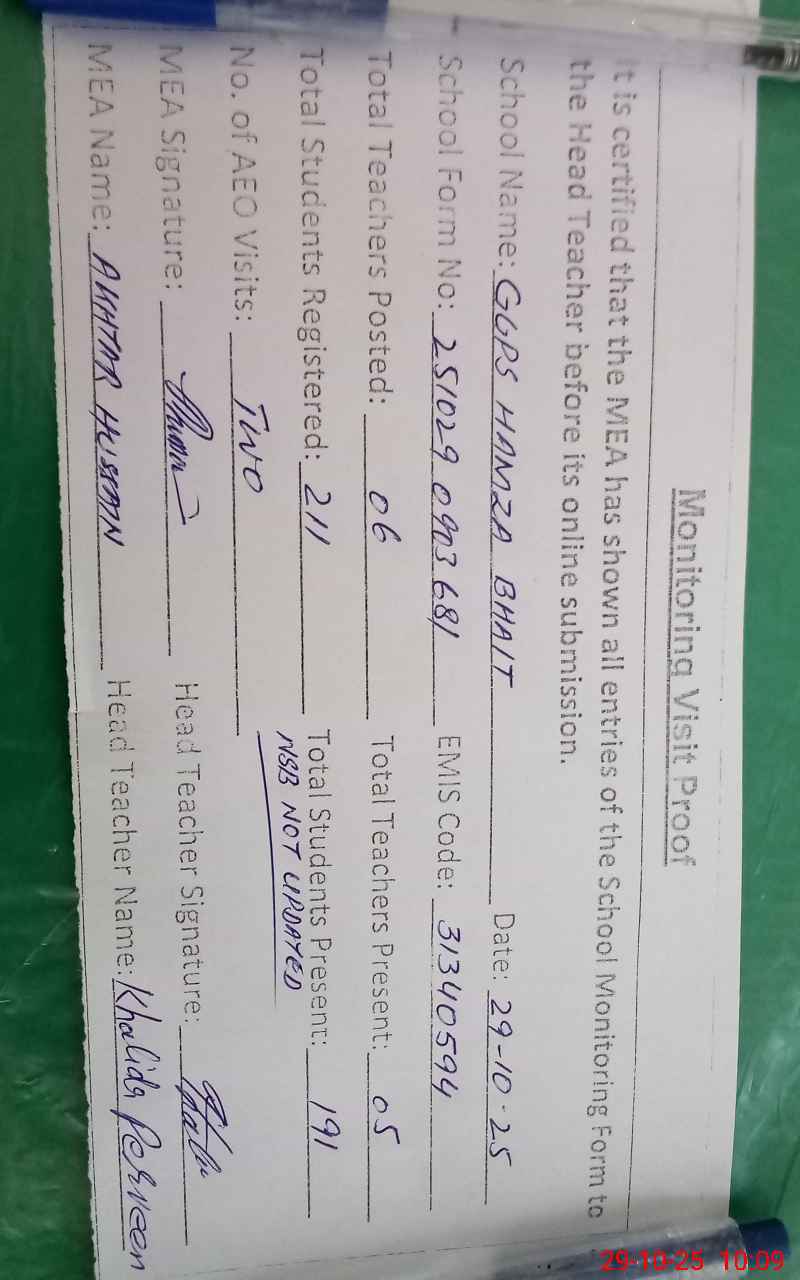 Monitoring Visit Proof
It is certified that the MEA has shown all entries of the School Monitoring Form to
the Head Teacher before its online submission.
School Name: GGPS HAMZA BHAIT Date: 29-10-25
School Form No: 251029 0903681 EMIS Code: 31340594
Total Teachers Posted: 06 Total Teachers Present: 05
Total Students Registered: 211 Total Students Present: 191
NSB NOT UPDATED
No. of AEO Visits: TWO
MEA Signature: Head Teacher Signature:
MEA Name: AKHTAR HUSSAIN Head Teacher Name: Khalida Perveen
29-10-25 10:09